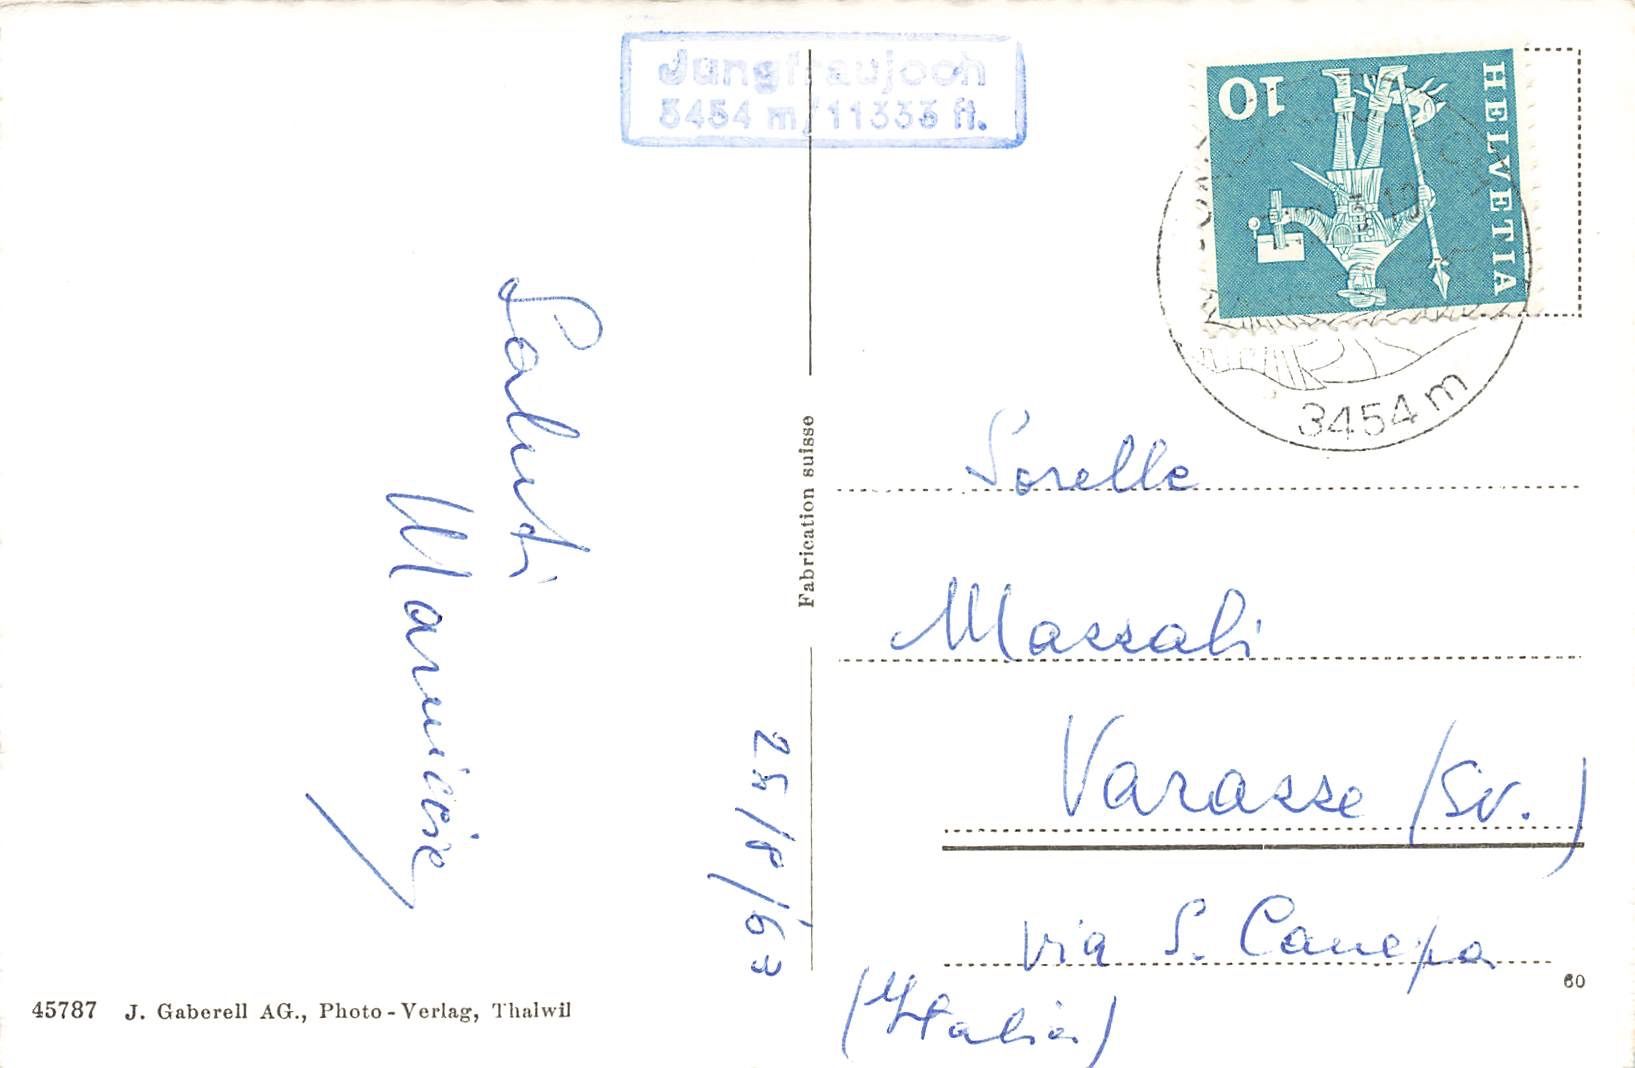 Jungfraujoch
3454 m/11333 ft.
HELVETIA
10
3454 m
Saluti
25/8/'63
Fabrication suisse
Sorelle
Massali
Varasse (Sv.)
via S. Canepa
(Italia)
60
45787 J. Gaberell AG., Photo-Verlag, Thalwil